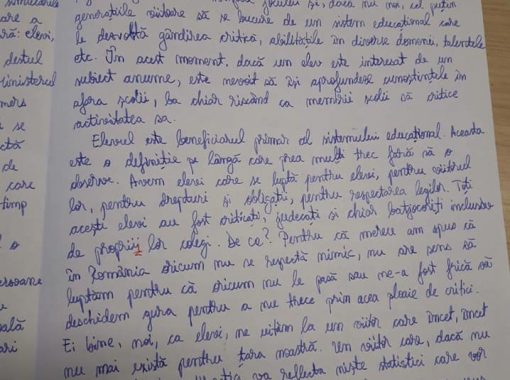 simularea
are a
ară: elevi,
destul
ministerul
mers
i se
tată
de
care
timp
o
ersoane
ală
ari
jocului și, dacă nu noi, cel puțin
generațiile viitoare să se bucure de un sistem educațional care
le dezvoltă gândirea critică, abilitățile în diverse domenii, talentele
etc. În acest moment, dacă un elev este interesat de un
subiect anume, este nevoit să își aprofundeze cunoștințele în
afara școlii, ba chiar riscând ca membrii școlii să critice
activitatea sa.
Elevul este beneficiarul primar al sistemului educațional. Aceasta
este o definiție pe lângă care prea mulți trec fără să o
observe. Avem elevi care se luptă pentru elevi, pentru viitorul
lor, pentru drepturi și obligații, pentru respectarea legilor. Toți
acești elevi au fost criticați, judecați și chiar batjocoriți inclusiv
de propriii lor colegi. De ce? Pentru că mereu am spus că
în România oricum nu se respectă nimic, nu are sens să
luptăm pentru că oricum nu le pasă sau ne-a fost frică să
deschidem gura pentru a nu trece prin acea ploaie de critici.
Ei bine, noi, ca elevi, ne uităm la un viitor care încet, încet
nu mai există pentru țara noastră. Un viitor care, dacă nu
va reflecta niște statistici care vor